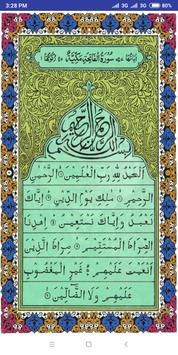 3:28 PM 3G 3G
سُوْرَةُ الْفَاتِحَةِ مَكِّيَّةٌ
بِسْمِ اللهِ الرَّحْمٰنِ الرَّحِيْمِ
اَلْحَمْدُ لِلّٰهِ رَبِّ الْعٰلَمِيْنَ الرَّحْمٰنِ
الرَّحِيْمِ مٰلِكِ يَوْمِ الدِّيْنِ اِيَّاكَ
نَعْبُدُ وَاِيَّاكَ نَسْتَعِيْنُ اِهْدِنَا
الصِّرَاطَ الْمُسْتَقِيْمَ صِرَاطَ الَّذِيْنَ
اَنْعَمْتَ عَلَيْهِمْ غَيْرِ الْمَغْضُوْبِ
عَلَيْهِمْ وَلَا الضَّآلِّيْنَ